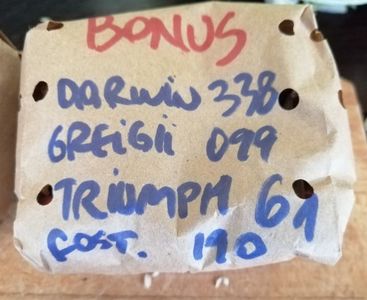 BONUS
DARWIN 338
GREiGii 099
TRIUMPH 61
FOST. 190